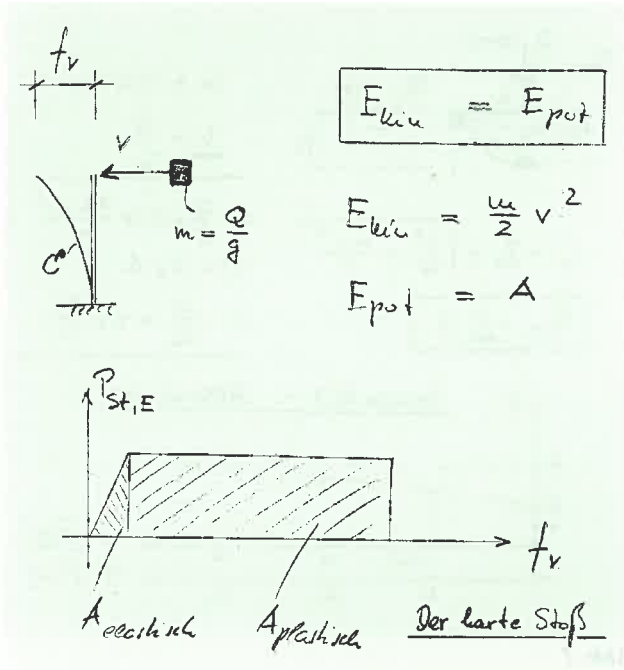 fv
E kin = E pot
v
m = Q/g
E kin = m/2 v²
C
E pot = A
P St,E
fv
A elastisch
A plastisch
Der harte Stoß